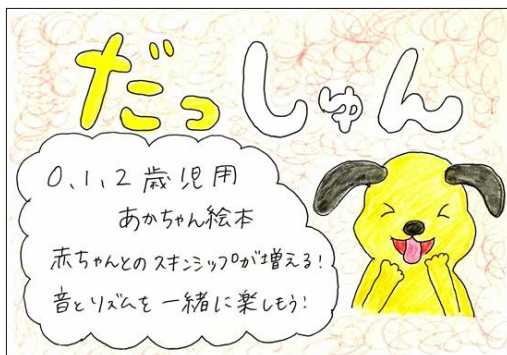 だっしゅん
0、1、2歳児用
あかちゃん絵本
赤ちゃんとのスキンシップが増える!
音とリズムを一緒に楽しもう!